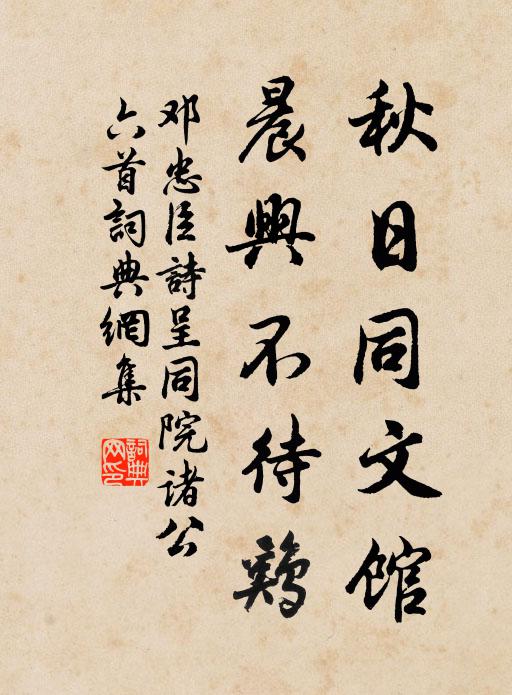 秋日同文館
晨興不待鷄
邓忠臣詩呈同院诸公
六首詞典網集
詞典网印